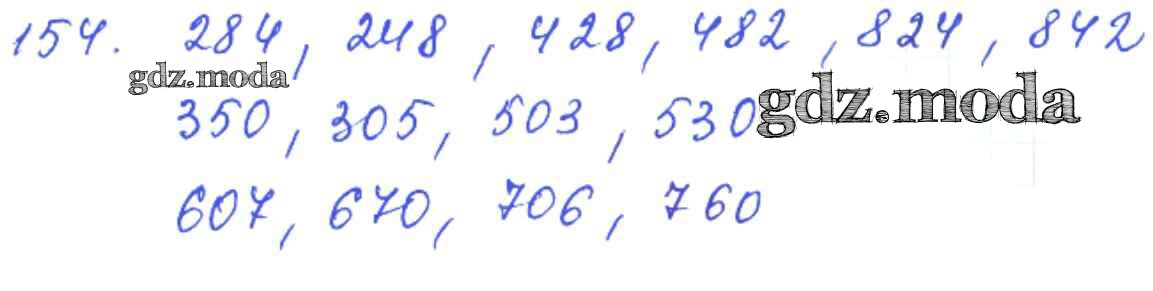 154. 284, 248, 428, 482, 824, 842
gdz.moda
350, 305, 503, 530 gdz.moda
607, 670, 706, 760